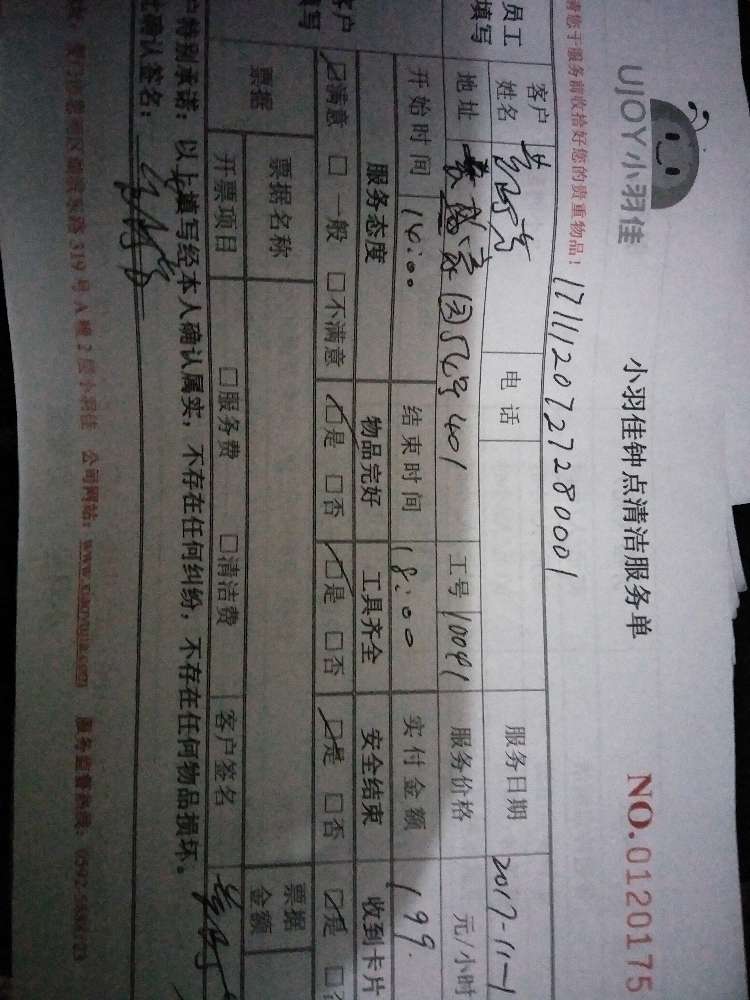 UJOY小羽佳
小羽佳钟点清洁服务单
NO.0120175
请您于服务前收拾好您的贵重物品！
1711120727280001
员工
填写
客户
姓名
电话
服务日期
2017-11-1
地址
401
工号
10041
服务价格
元/小时
开始时间
14:00
结束时间
18:00
实付金额
199
客户
填写
服务态度
物品完好
工具齐全
安全结束
收到卡片
☑满意 □一般 □不满意
☑是 □否
☑是 □否
☑是 □否
☑是 □否
票据
票据名称
票据
金额
开票项目
□服务费 □清洁费
客户签名
户特别承诺：以上填写经本人确认属实，不存在任何纠纷，不存在任何物品损坏。
确认签名：
319号A幢2楼小羽佳 公司网站：www.xiaoyujia.com 服务监督热线：